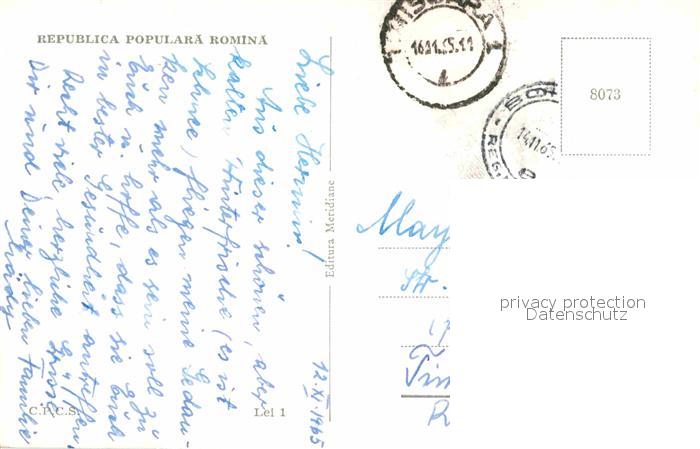 REPUBLICA POPULARĂ ROMÎNĂ
Liebe Hermin!
Aus dieser schönen, aber
kalten Winterfrische (es ist
Schnee, fliegen meine Gedan-
ken mehr als es sein soll zu
Euch u. hoffe, dass sie Euch
in bester Gesundheit antreffen,
Recht viele herzliche Grüsse
Dir und Deiner lieben Familie
Mady
12.XI.1965
C.P.C.S.
Lei 1
Editura Meridiane
16.11.65.11
14.11.65
8073
May
Str.
17
Tim
R
privacy protection
Datenschutz